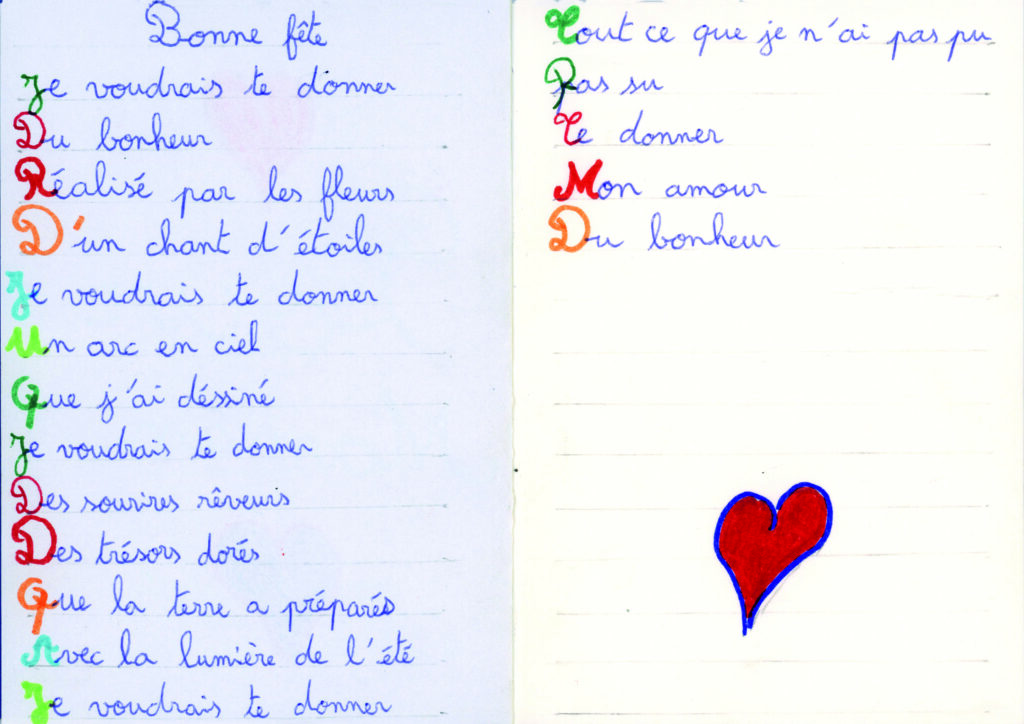 Bonne fête
Je voudrais te donner
Du bonheur
Réalisé par les fleurs
D'un chant d'étoiles
Je voudrais te donner
Un arc en ciel
Que j'ai déssiné
Je voudrais te donner
Des sourires rêveurs
Des trésors dorés
Que la terre a préparés
Avec la lumière de l'été
Je voudrais te donner
Tout ce que je n'ai pas pu
Pas su
Te donner
Mon amour
Du bonheur